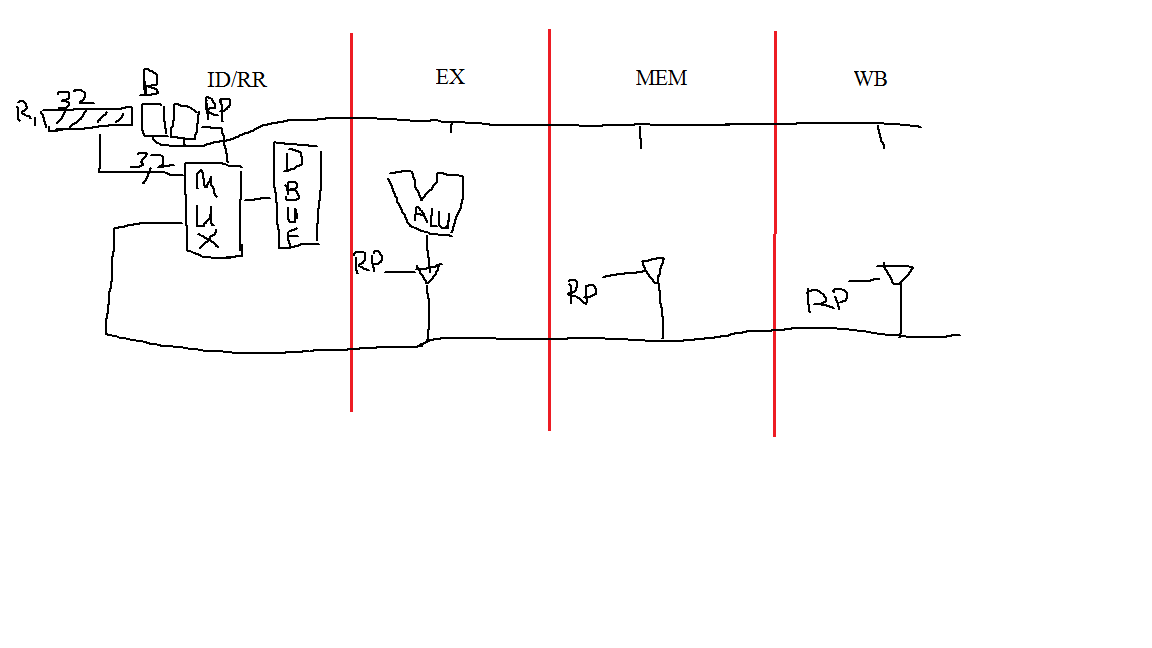 ID/RR EX MEM WB
B
32
R1
RP
32
MUX
DBUF
ALU
RP
RP
RP